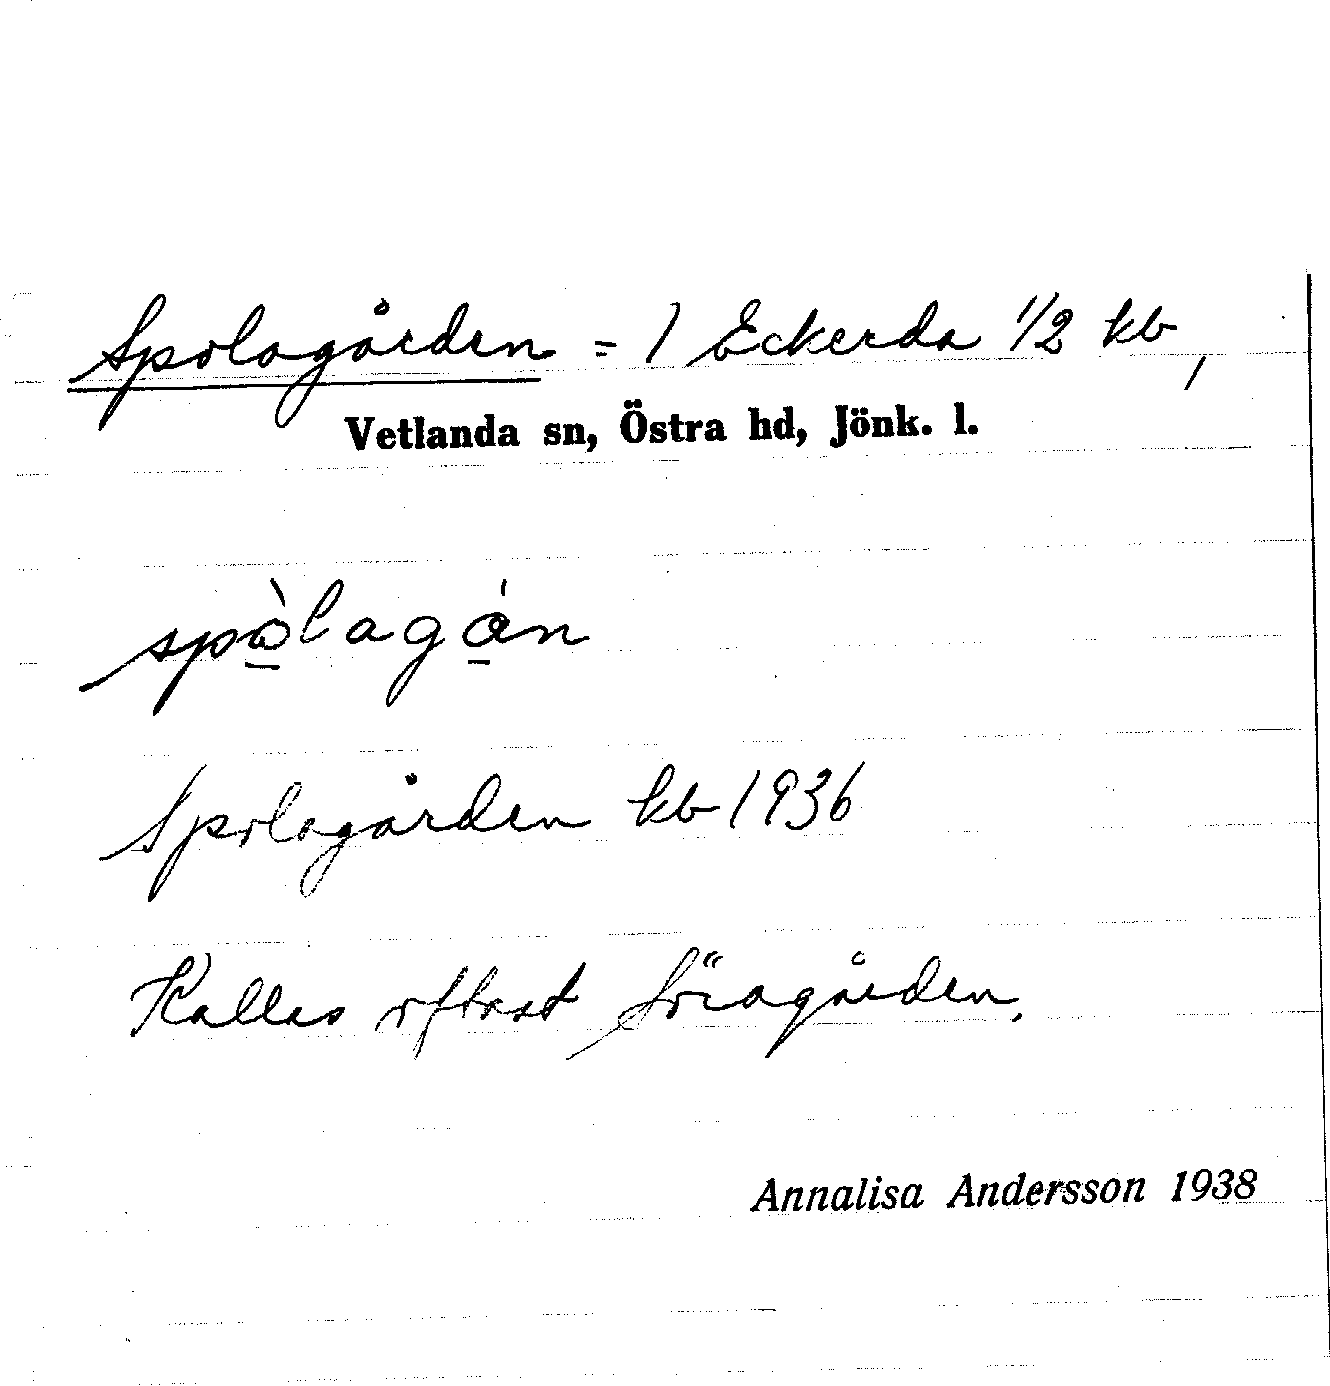 Spolagården = 1 Eckerda 1/2 kb,
Vetlanda sn, Östra hd, Jönk. l.
spò̱lagá̱n
Spolagården kb 1936
Kallas oftast Söragården.
Annalisa Andersson 1938